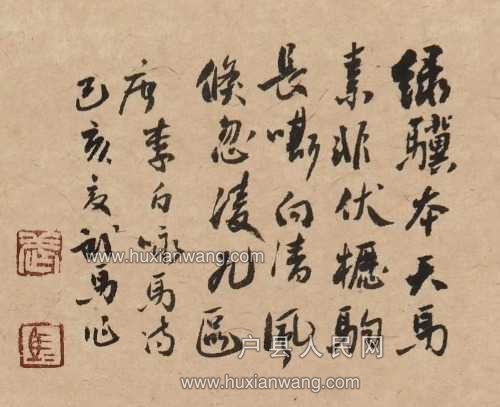 绿驥本天馬
素非伏櫪駒
長嘶向清風
倏忽凌九區
唐李白咏馬诗
己亥夏馬作
www.huxianwang.com
户县人民网
www.huxianwang.com